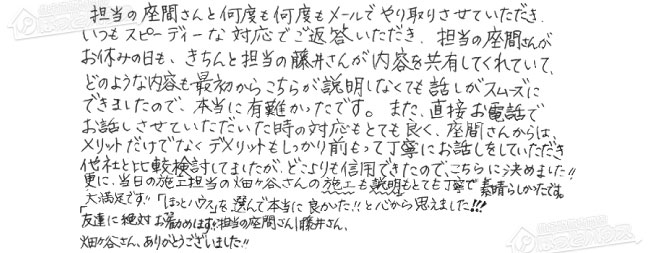 担当の座間さんと何度も何度もメールでやり取りさせていただき、
いつもスピーディーな対応でご返答いただき、担当の座間さんが
お休みの日も、きちんと担当の藤井さんが内容を共有してくれていて、
どのような内容も最初からこちらが説明しなくても話しがスムーズに
できましたので、本当に有難かったです。また、直接お電話で
お話しさせていただいた時の対応もとても良く、座間さんからは、
メリットだけでなくデメリットもしっかり前もって丁寧にお話しをしていただき
他社と比較検討してましたが、どこよりも信用できたので、こちらに決めました!!
更に、当日の施工担当の畑ヶ谷さんの施工も説明もとても丁寧で素晴らしかったです。
大満足です!!「ほっとハウス」を選んで本当に良かった!!と心から思えました!!!
友達に絶対お勧めします!担当の座間さん、藤井さん、
畑ヶ谷さん、ありがとうございました!!